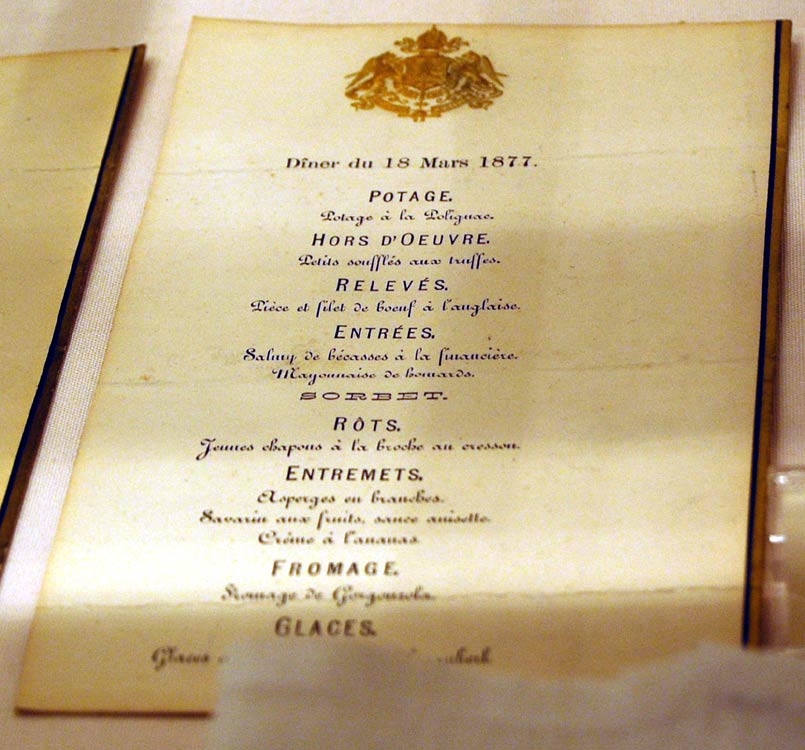 Dîner du 18 Mars 1877.
POTAGE.
Potage à la Polignac.
HORS D'OEUVRE.
Petits soufflés aux truffes.
RELEVÉS.
Pièce et filet de boeuf à l'anglaise.
ENTRÉES.
Salmy de bécasses à la financière.
Mayonnaise de homards.
SORBET.
RÔTS.
Jeunes chapons à la broche au cresson.
ENTREMETS.
Asperges en branches.
Savarin aux fruits, sauce anisette.
Crême à l'ananas.
FROMAGE.
Fromage de Gorgonzola.
GLACES.
Glaces